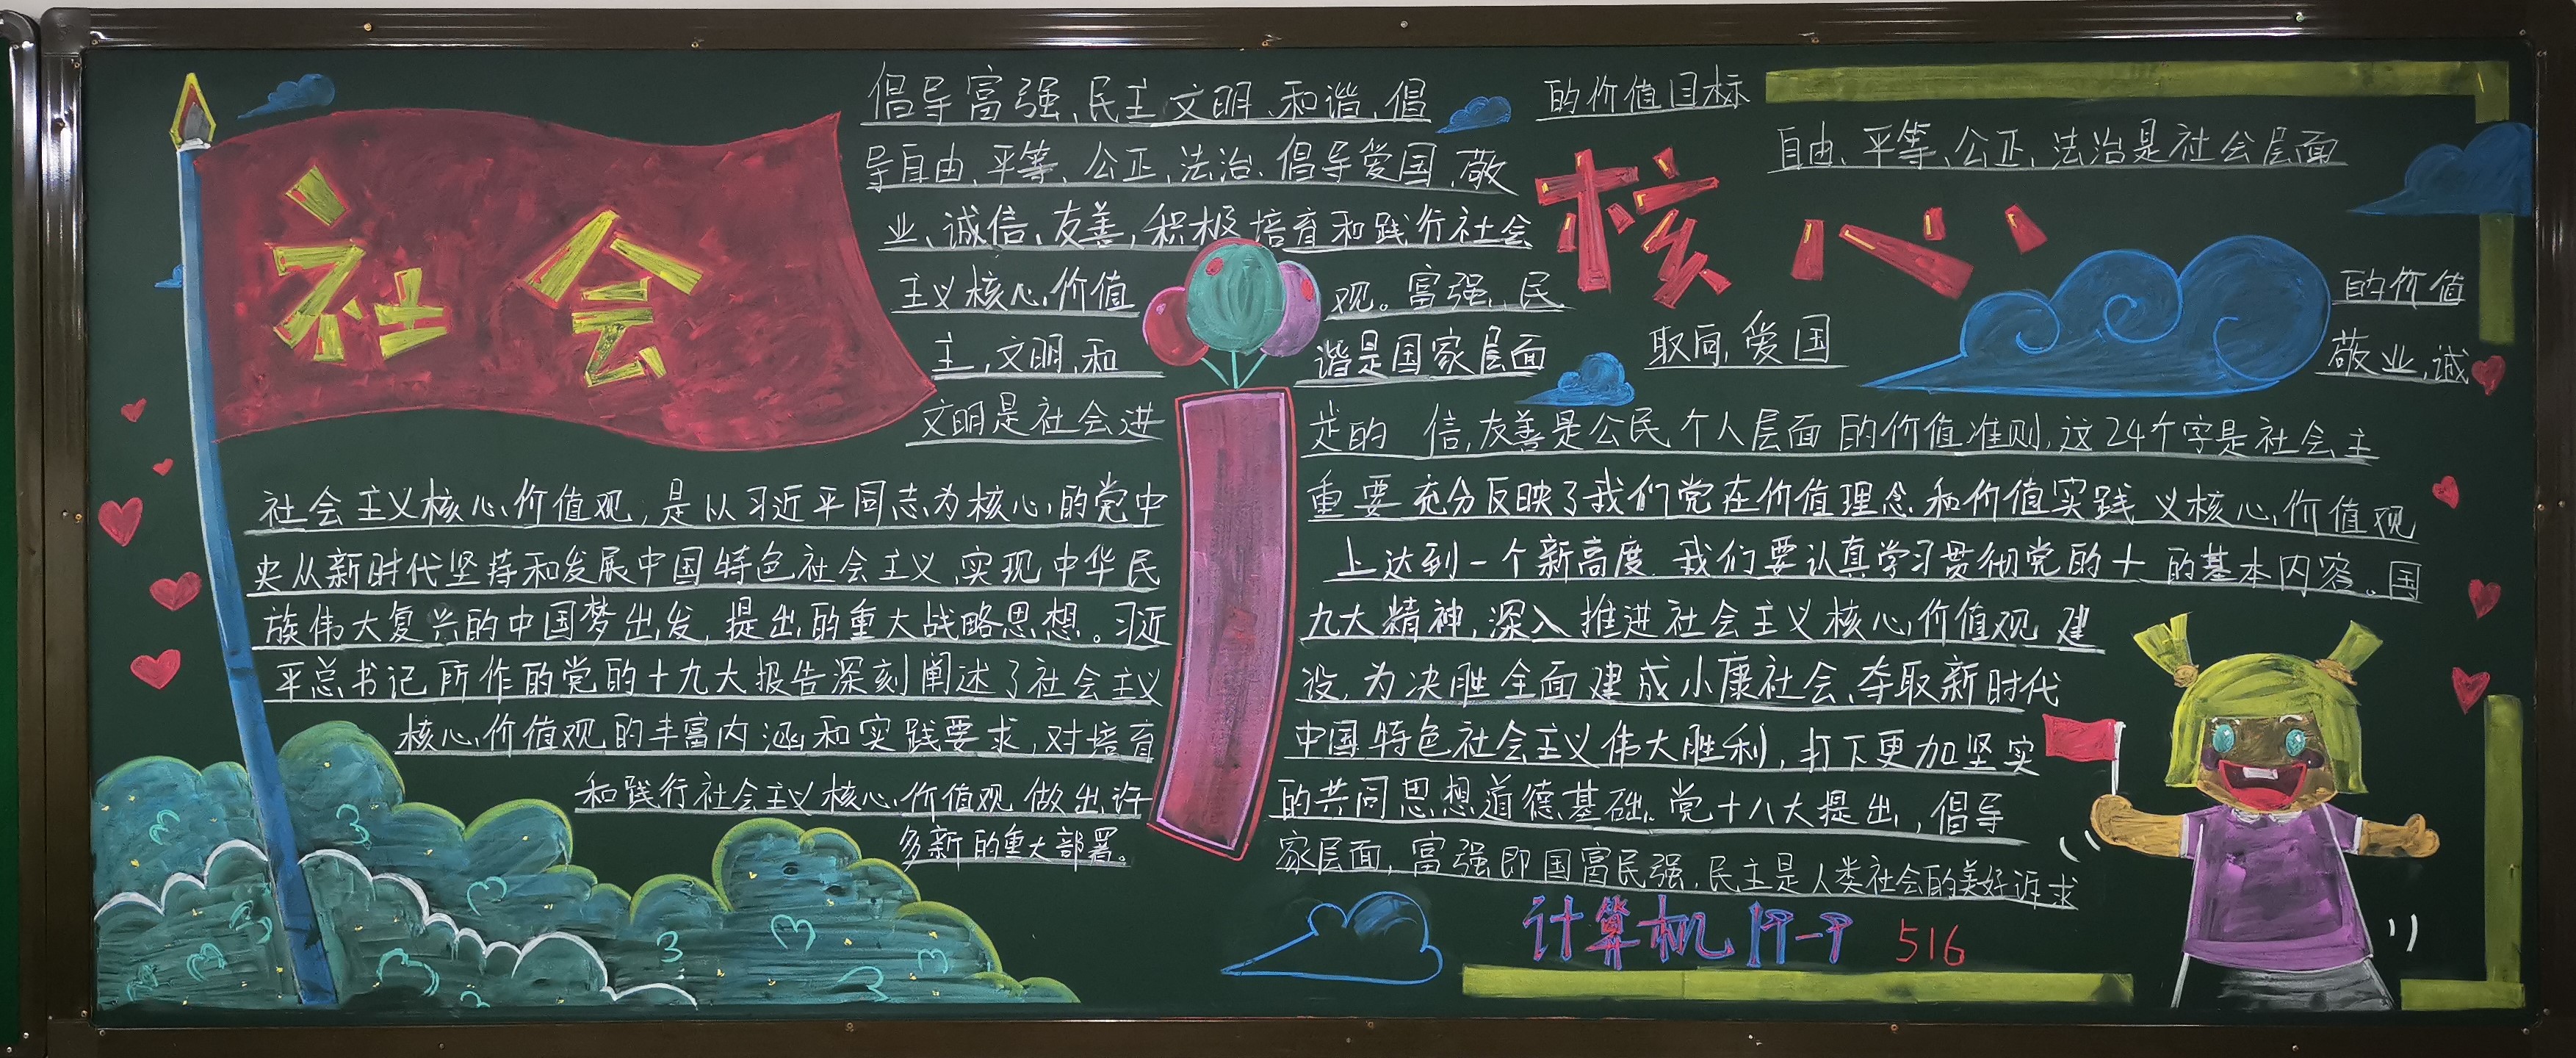 社会
核心
倡导富强、民主、文明、和谐，倡
导自由、平等、公正、法治、倡导爱国、敬
业、诚信、友善，积极培育和践行社会
主义核心价值 观。富强、民
主、文明、和 谐是国家层面
的价值目标
自由、平等、公正、法治是社会层面
的价值
取向，爱国 敬业、诚
文明是社会进 步的 信，友善是公民个人层面的价值准则，这24个字是社会主
社会主义核心价值观，是以习近平同志为核心的党中
央从新时代坚持和发展中国特色社会主义、实现中华民
族伟大复兴的中国梦出发，提出的重大战略思想。习近
平总书记所作的党的十九大报告深刻阐述了社会主义
核心价值观的丰富内涵和实践要求，对培育
和践行社会主义核心价值观做出许
多新的重大部署。
重要 充分反映了我们党在价值理念和价值实践 义核心价值观
上达到一个新高度.我们要认真学习贯彻党的十 的基本内容。国
九大精神，深入推进社会主义核心价值观建
设，为决胜全面建成小康社会、夺取新时代
中国特色社会主义伟大胜利，打下更加坚实
的共同思想道德基础。党十八大提出，倡导
家层面，富强即国富民强，民主是人类社会的美好诉求
计算机19-9 516